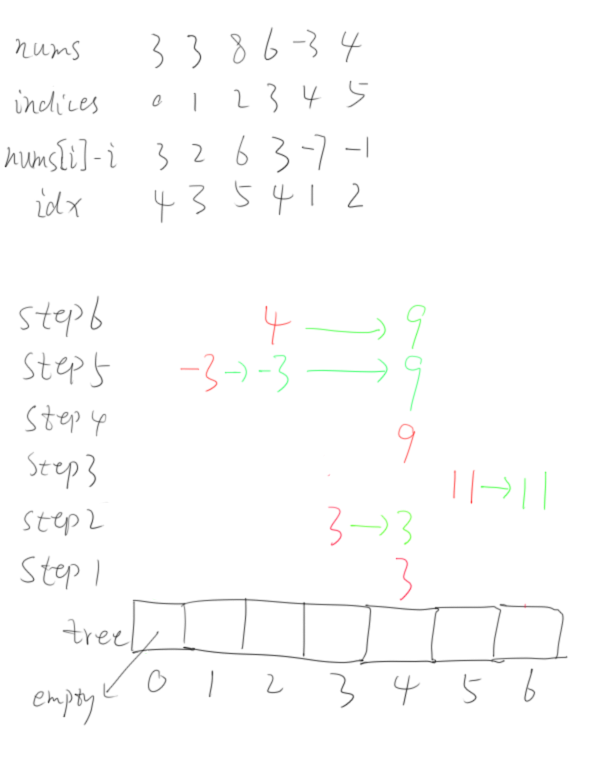 nums 3 3 8 6 -3 4
indices 0 1 2 3 4 5
nums[i]-i 3 2 6 3 -7 -1
idx 4 3 5 4 1 2
step6 4 → 9
step5 -3 → -3 → 9
step4 9
step3 11 → 11
step2 3 → 3
step1 3
tree
empty 0 1 2 3 4 5 6